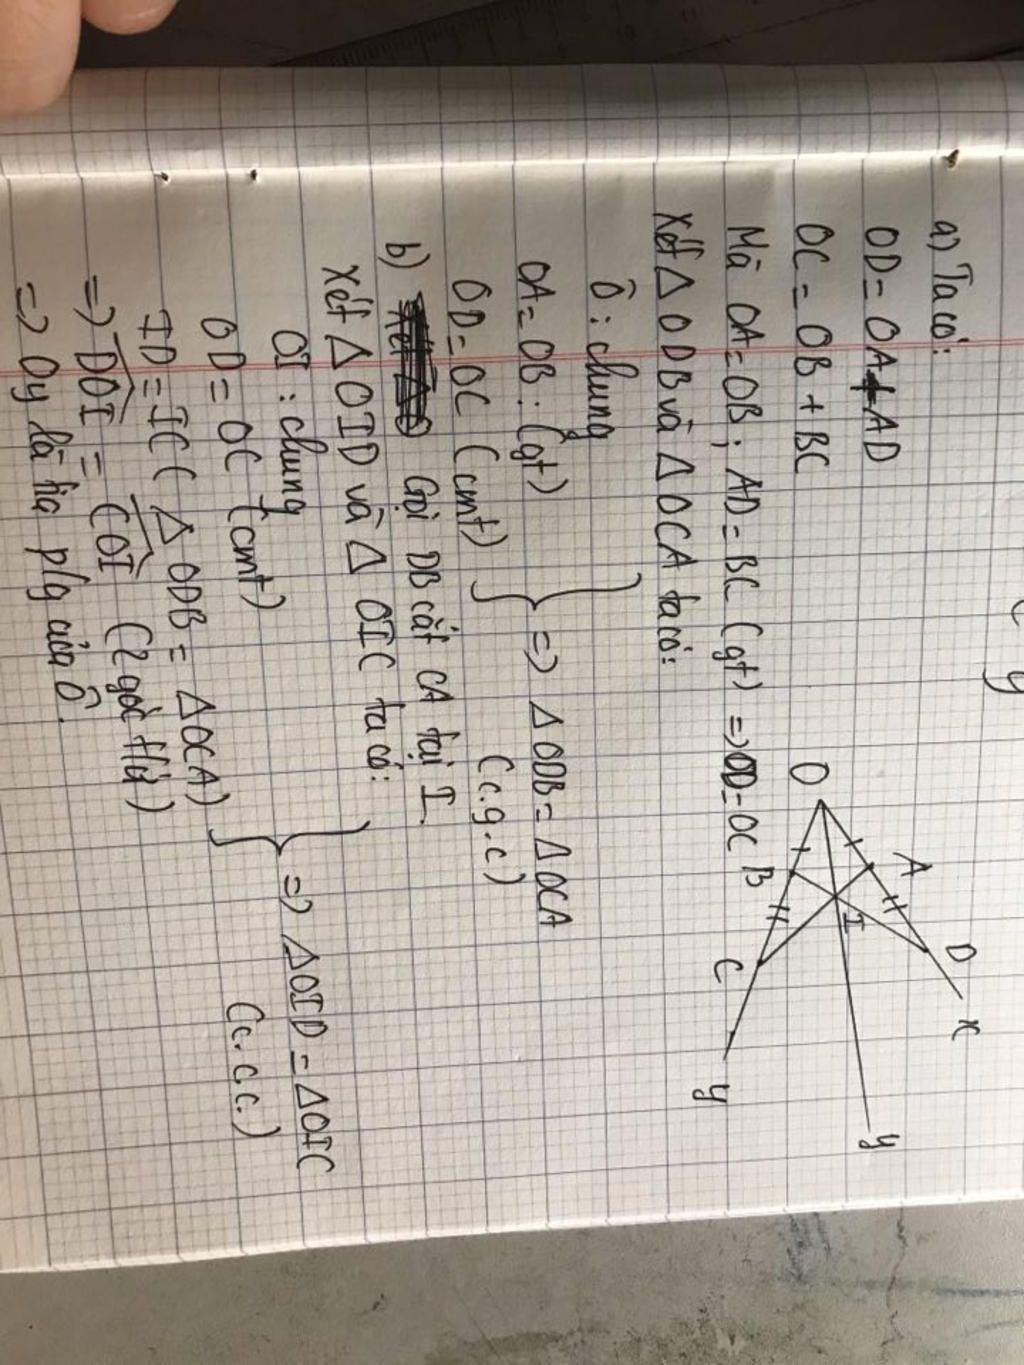 a) Ta có:
OD = OA + AD
OC = OB + BC
Mà OA = OB ; AD = BC (gt) => OD = OC
Xét Δ ODB và Δ OCA ta có:
Ô : chung
OA = OB : (gt)
OD = OC (cmt)
=> Δ ODB = Δ OCA
(c.g.c)
b) Gọi DB cắt CA tại I.
Xét Δ OID và Δ OIC ta có:
OI : chung
OD = OC (cmt)
ID = IC (Δ ODB = Δ OCA)
=> ΔOID = ΔOIC
(c.c.c.)
=> DOI = COI (2 góc t/ứ)
=> Oy là tia p/g của Ô.
O
A
D
x
I
B
C
y
y
y